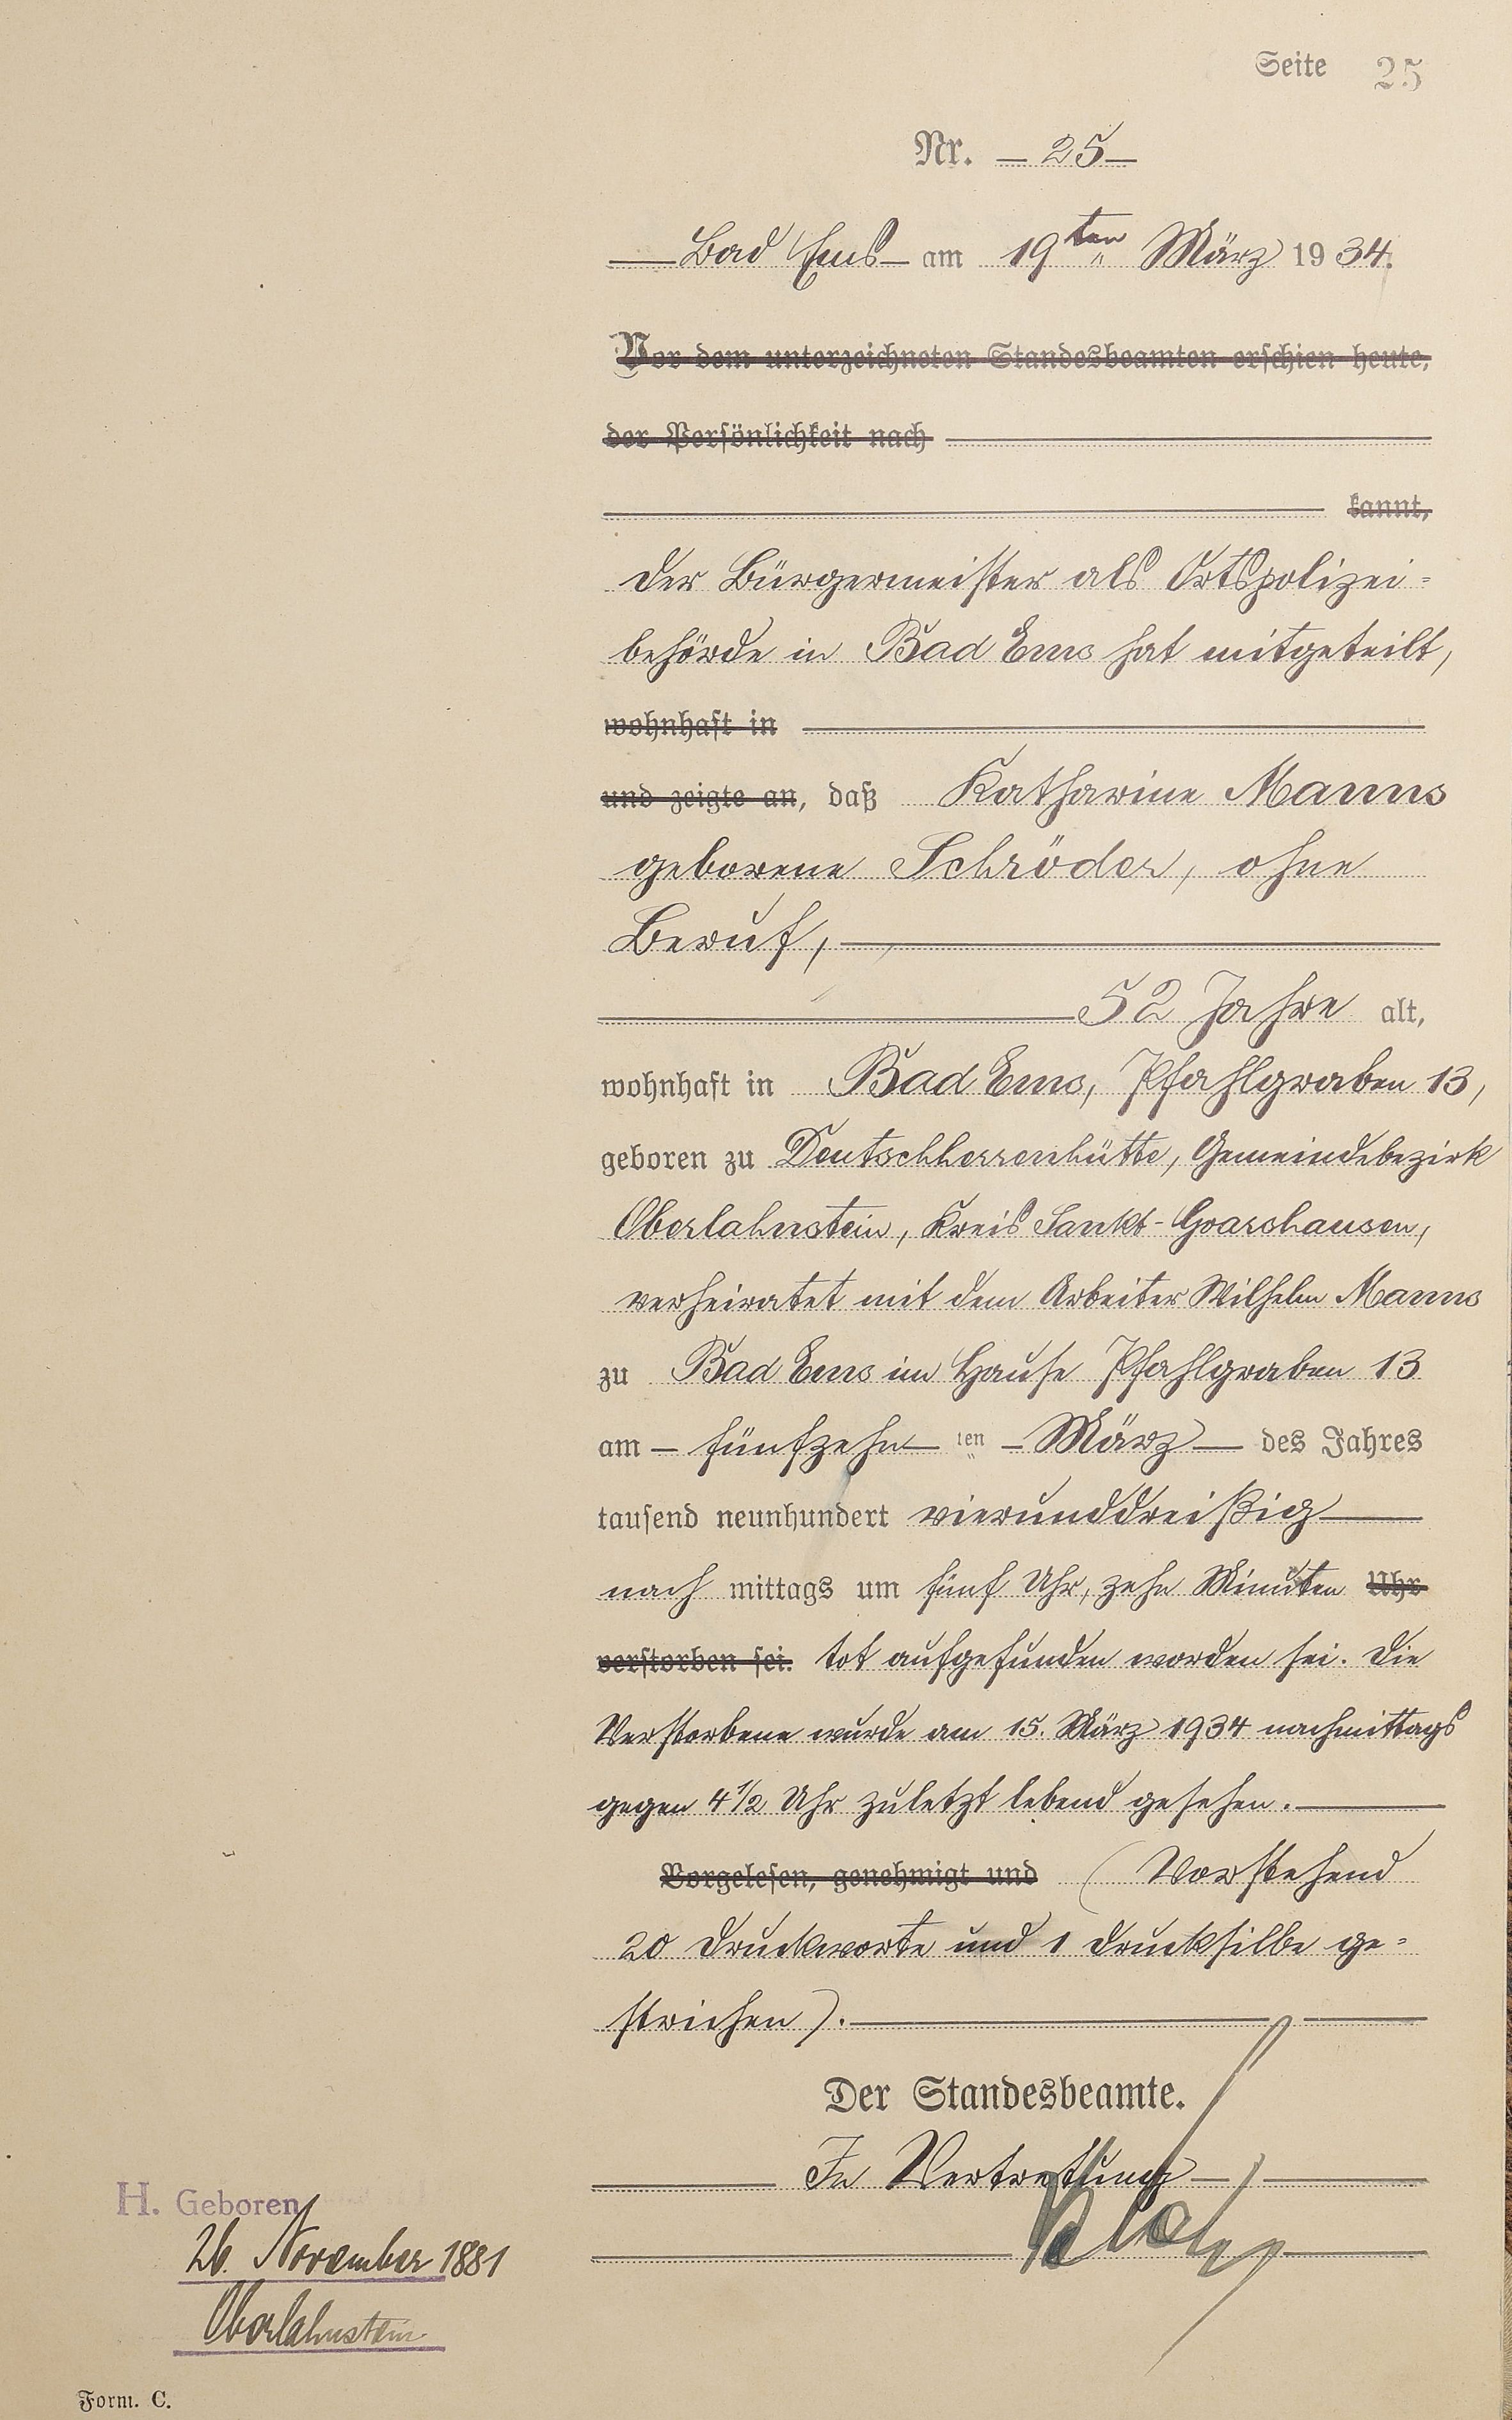 Seite 25
Nr. — 25 —
Bad Ems am 19ten März 1934.
Vor dem unterzeichneten Standesbeamten erschien heute,
der Persönlichkeit nach
kannt,
Der Bürgermeister als Ortspolizei=
behörde in Bad Ems hat mitgeteilt,
wohnhaft in
und zeigte an, daß Katharine Manns
geborene Schröder, ohne
Beruf,
52 Jahre alt,
wohnhaft in Bad Ems, Pfahlgraben 13,
geboren zu Deutschherrenhütte, Gemeindebezirk
Oberlahnstein, Kreis Sankt-Goarshausen,
verheiratet mit dem Arbeiter Wilhelm Manns
zu Bad Ems im Hause Pfahlgraben 13
am — fünfzehn — ten — März — des Jahres
tausend neunhundert vierunddreißig
nach mittags um fünf Uhr, zehn Minuten Uhr
verstorben sei. tot aufgefunden worden sei. Die
Verstorbene wurde am 15. März 1934 nachmittags
gegen 4½ Uhr zuletzt lebend gesehen.
Vorgelesen, genehmigt und (Vorstehend
20 Druckworte und 1 Drucksilbe ge=
strichen).
Der Standesbeamte.
In Vertretung
H. Geboren
26. November 1881
Oberlahnstein
Form. C.